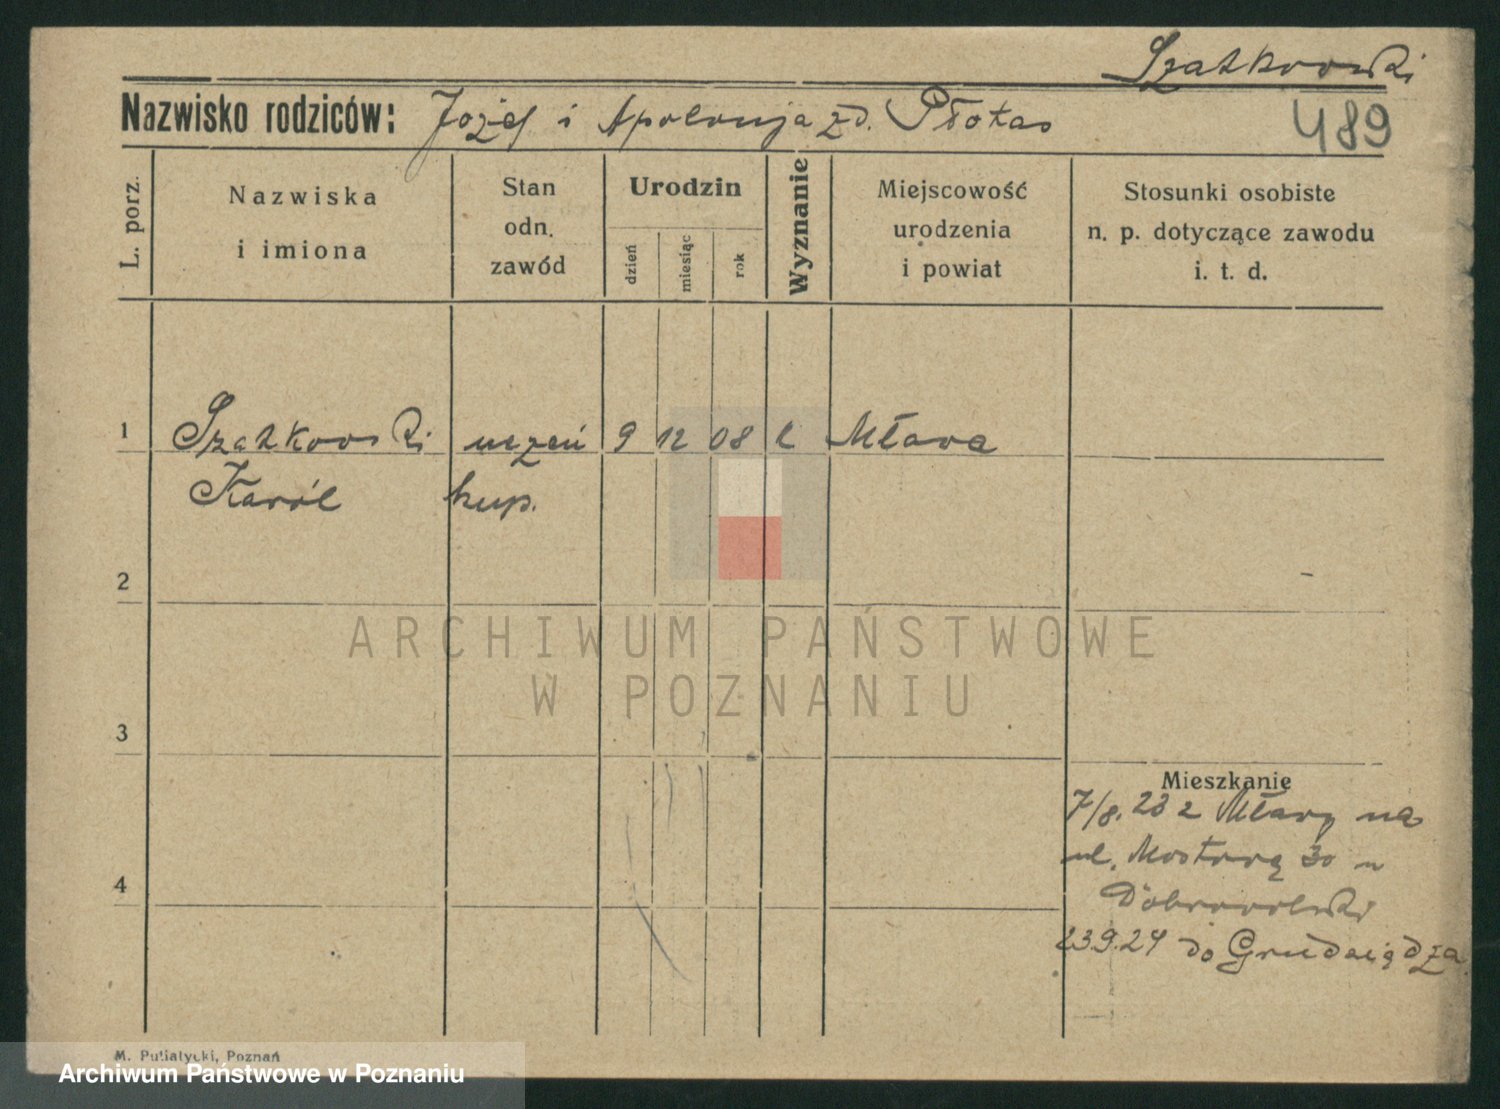 Szatkowski
Nazwisko rodziców: Józef i Apolonja zd. Płotas
489
L. porz.
Nazwiska
i imiona
Stan
odn.
zawód
Urodzin
dzień
miesiąc
rok
Wyznanie
Miejscowość
urodzenia
i powiat
Stosunki osobiste
n. p. dotyczące zawodu
i. t. d.
1 Szatkowski uczeń 9 12 08 k Mława
Karól kup.
2
ARCHIWUM PAŃSTWOWE
W POZNANIU
3
Mieszkanie
7/8. 23 z Mławy na
ul. Mostową 30 u
4
Dobrowolski
23.9.24 do Grudziądza
M. Putiatycki, Poznań
Archiwum Państwowe w Poznaniu